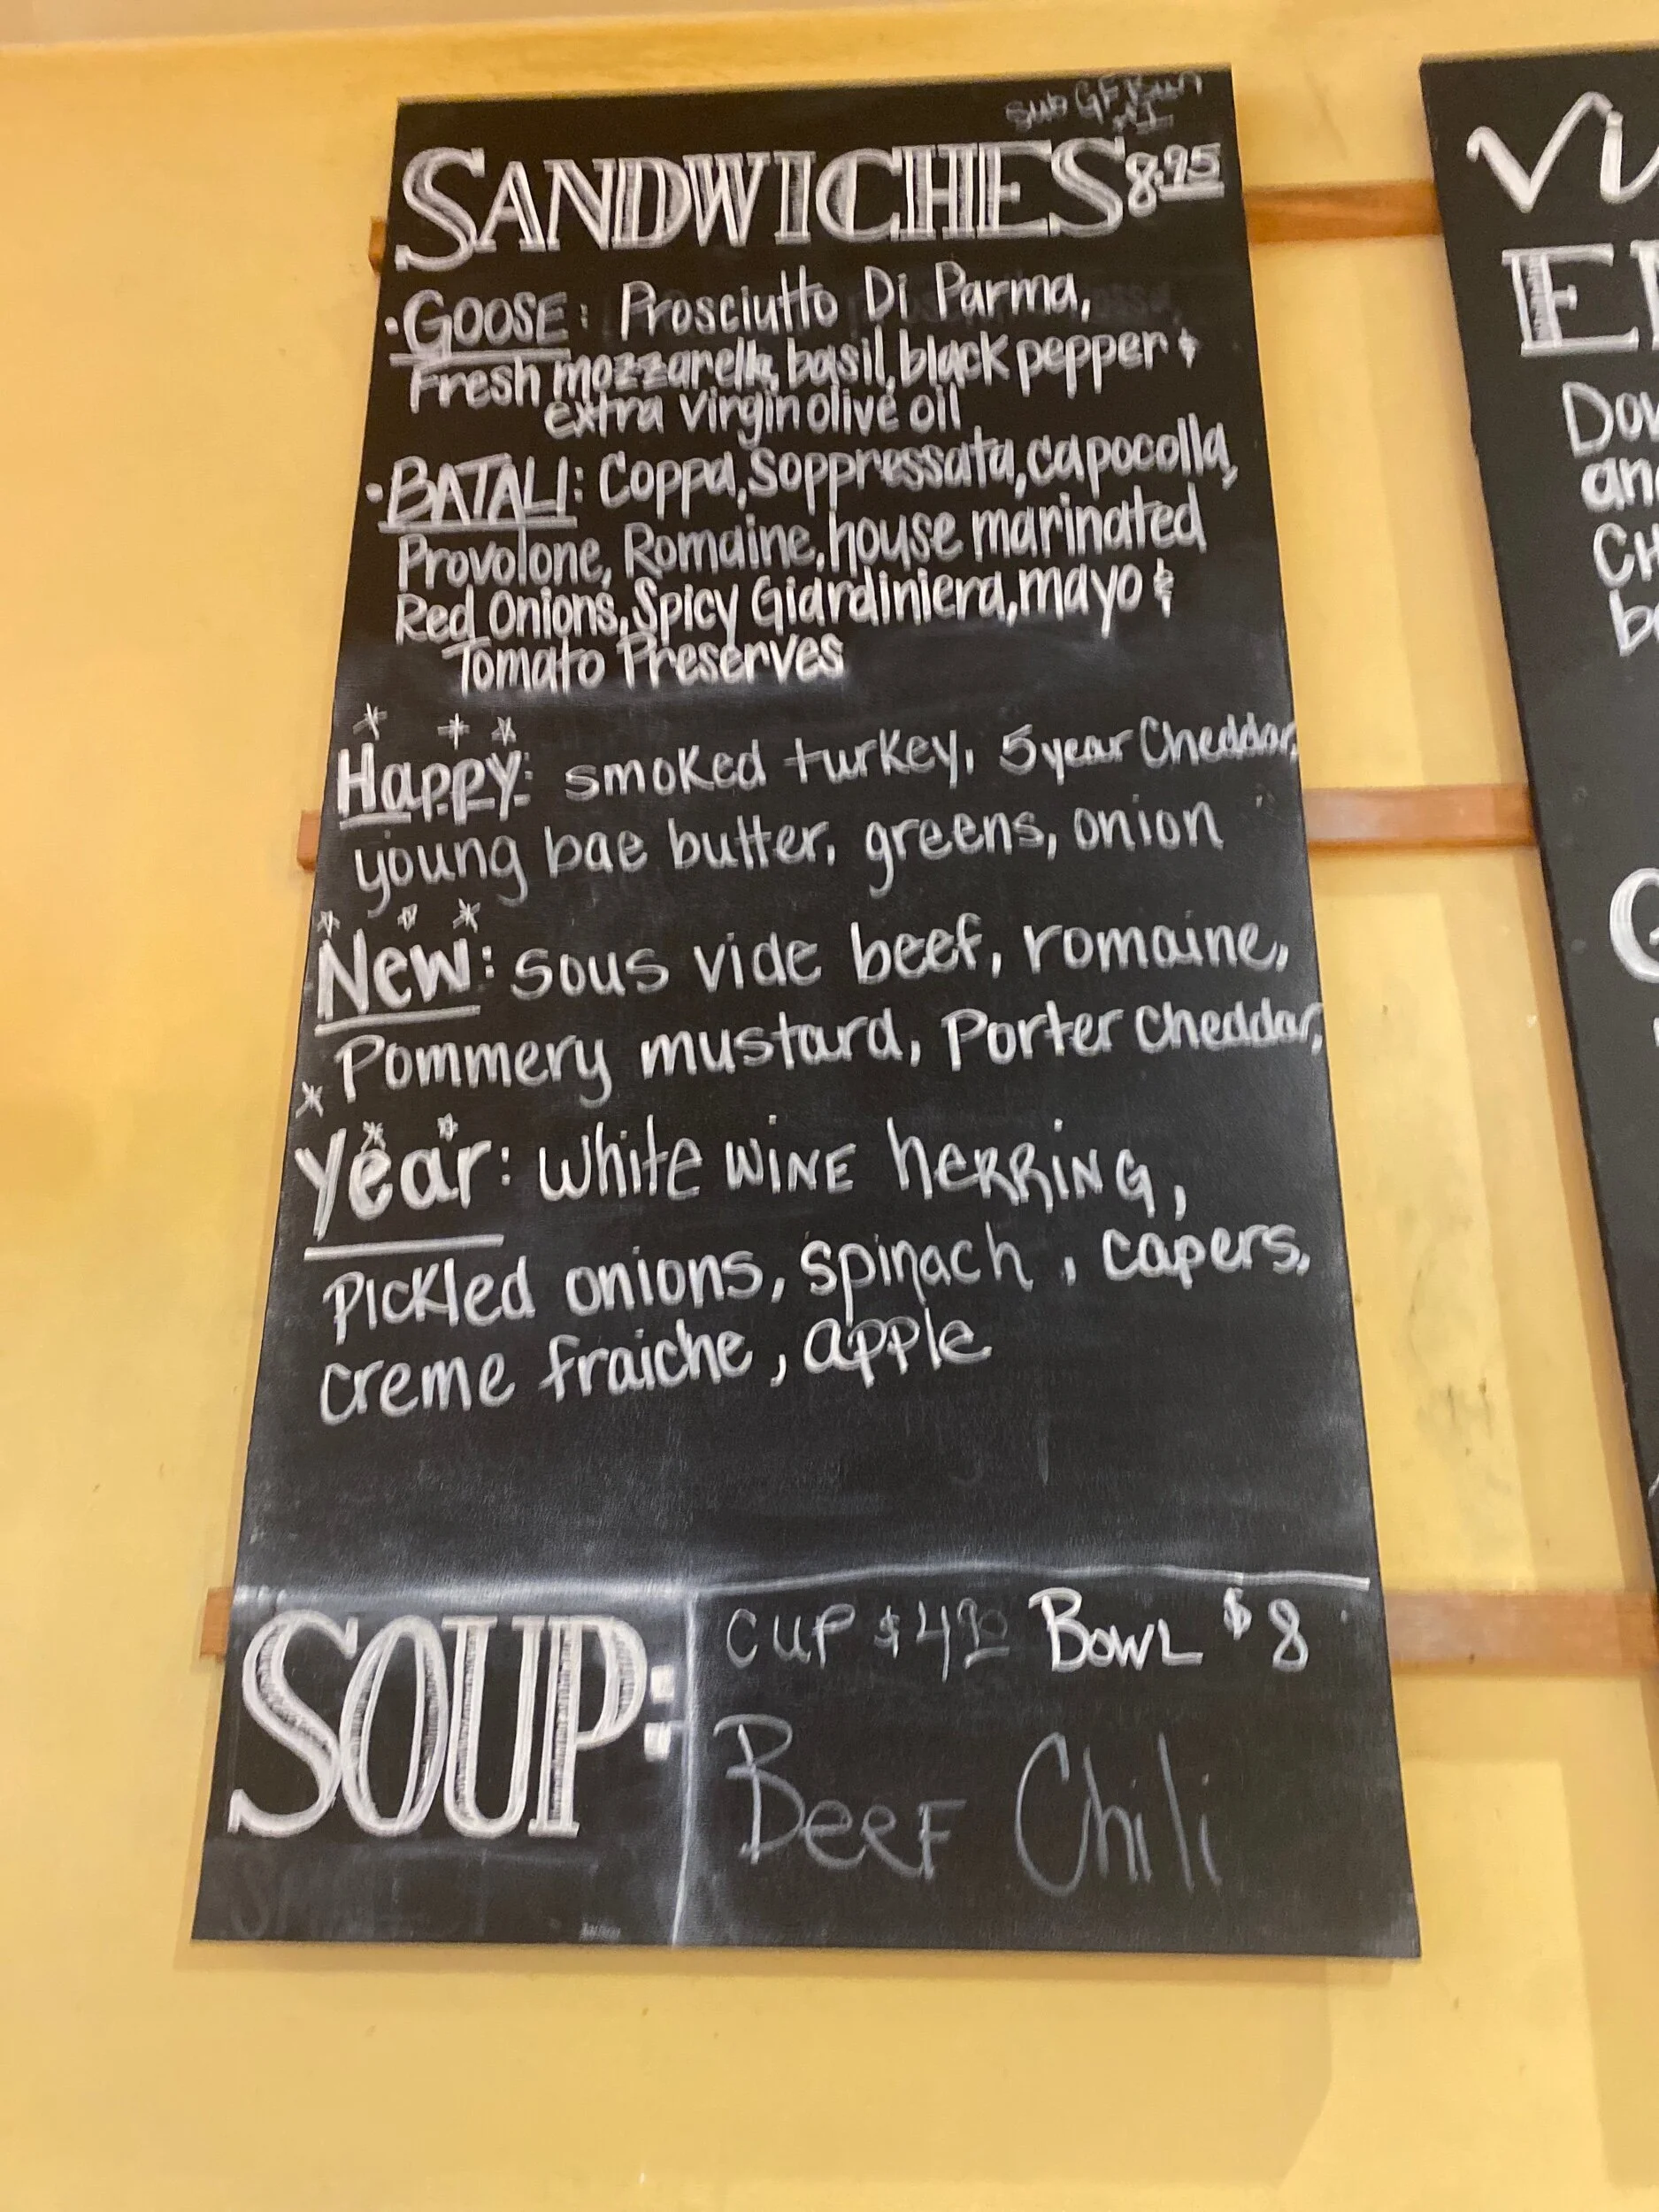 Sub GF Bun
SANDWICHES 8.95
• GOOSE: Prosciutto Di Parma,
Fresh mozzarella, basil, black pepper &
extra virgin olive oil
• BATALI: Coppa, Soppressata, capocolla,
Provolone, Romaine, house marinated
Red Onions, Spicy Giardiniera, mayo &
Tomato Preserves
Happy: smoked turkey, 5 year Cheddar,
young bae butter, greens, onion
New: sous vide beef, romaine,
Pommery mustard, Porter Cheddar,
Year: white WINE HERRING,
Pickled onions, spinach, capers,
creme fraiche, apple
SOUP:
CUP $4.90 BOWL $8
BEEF Chili